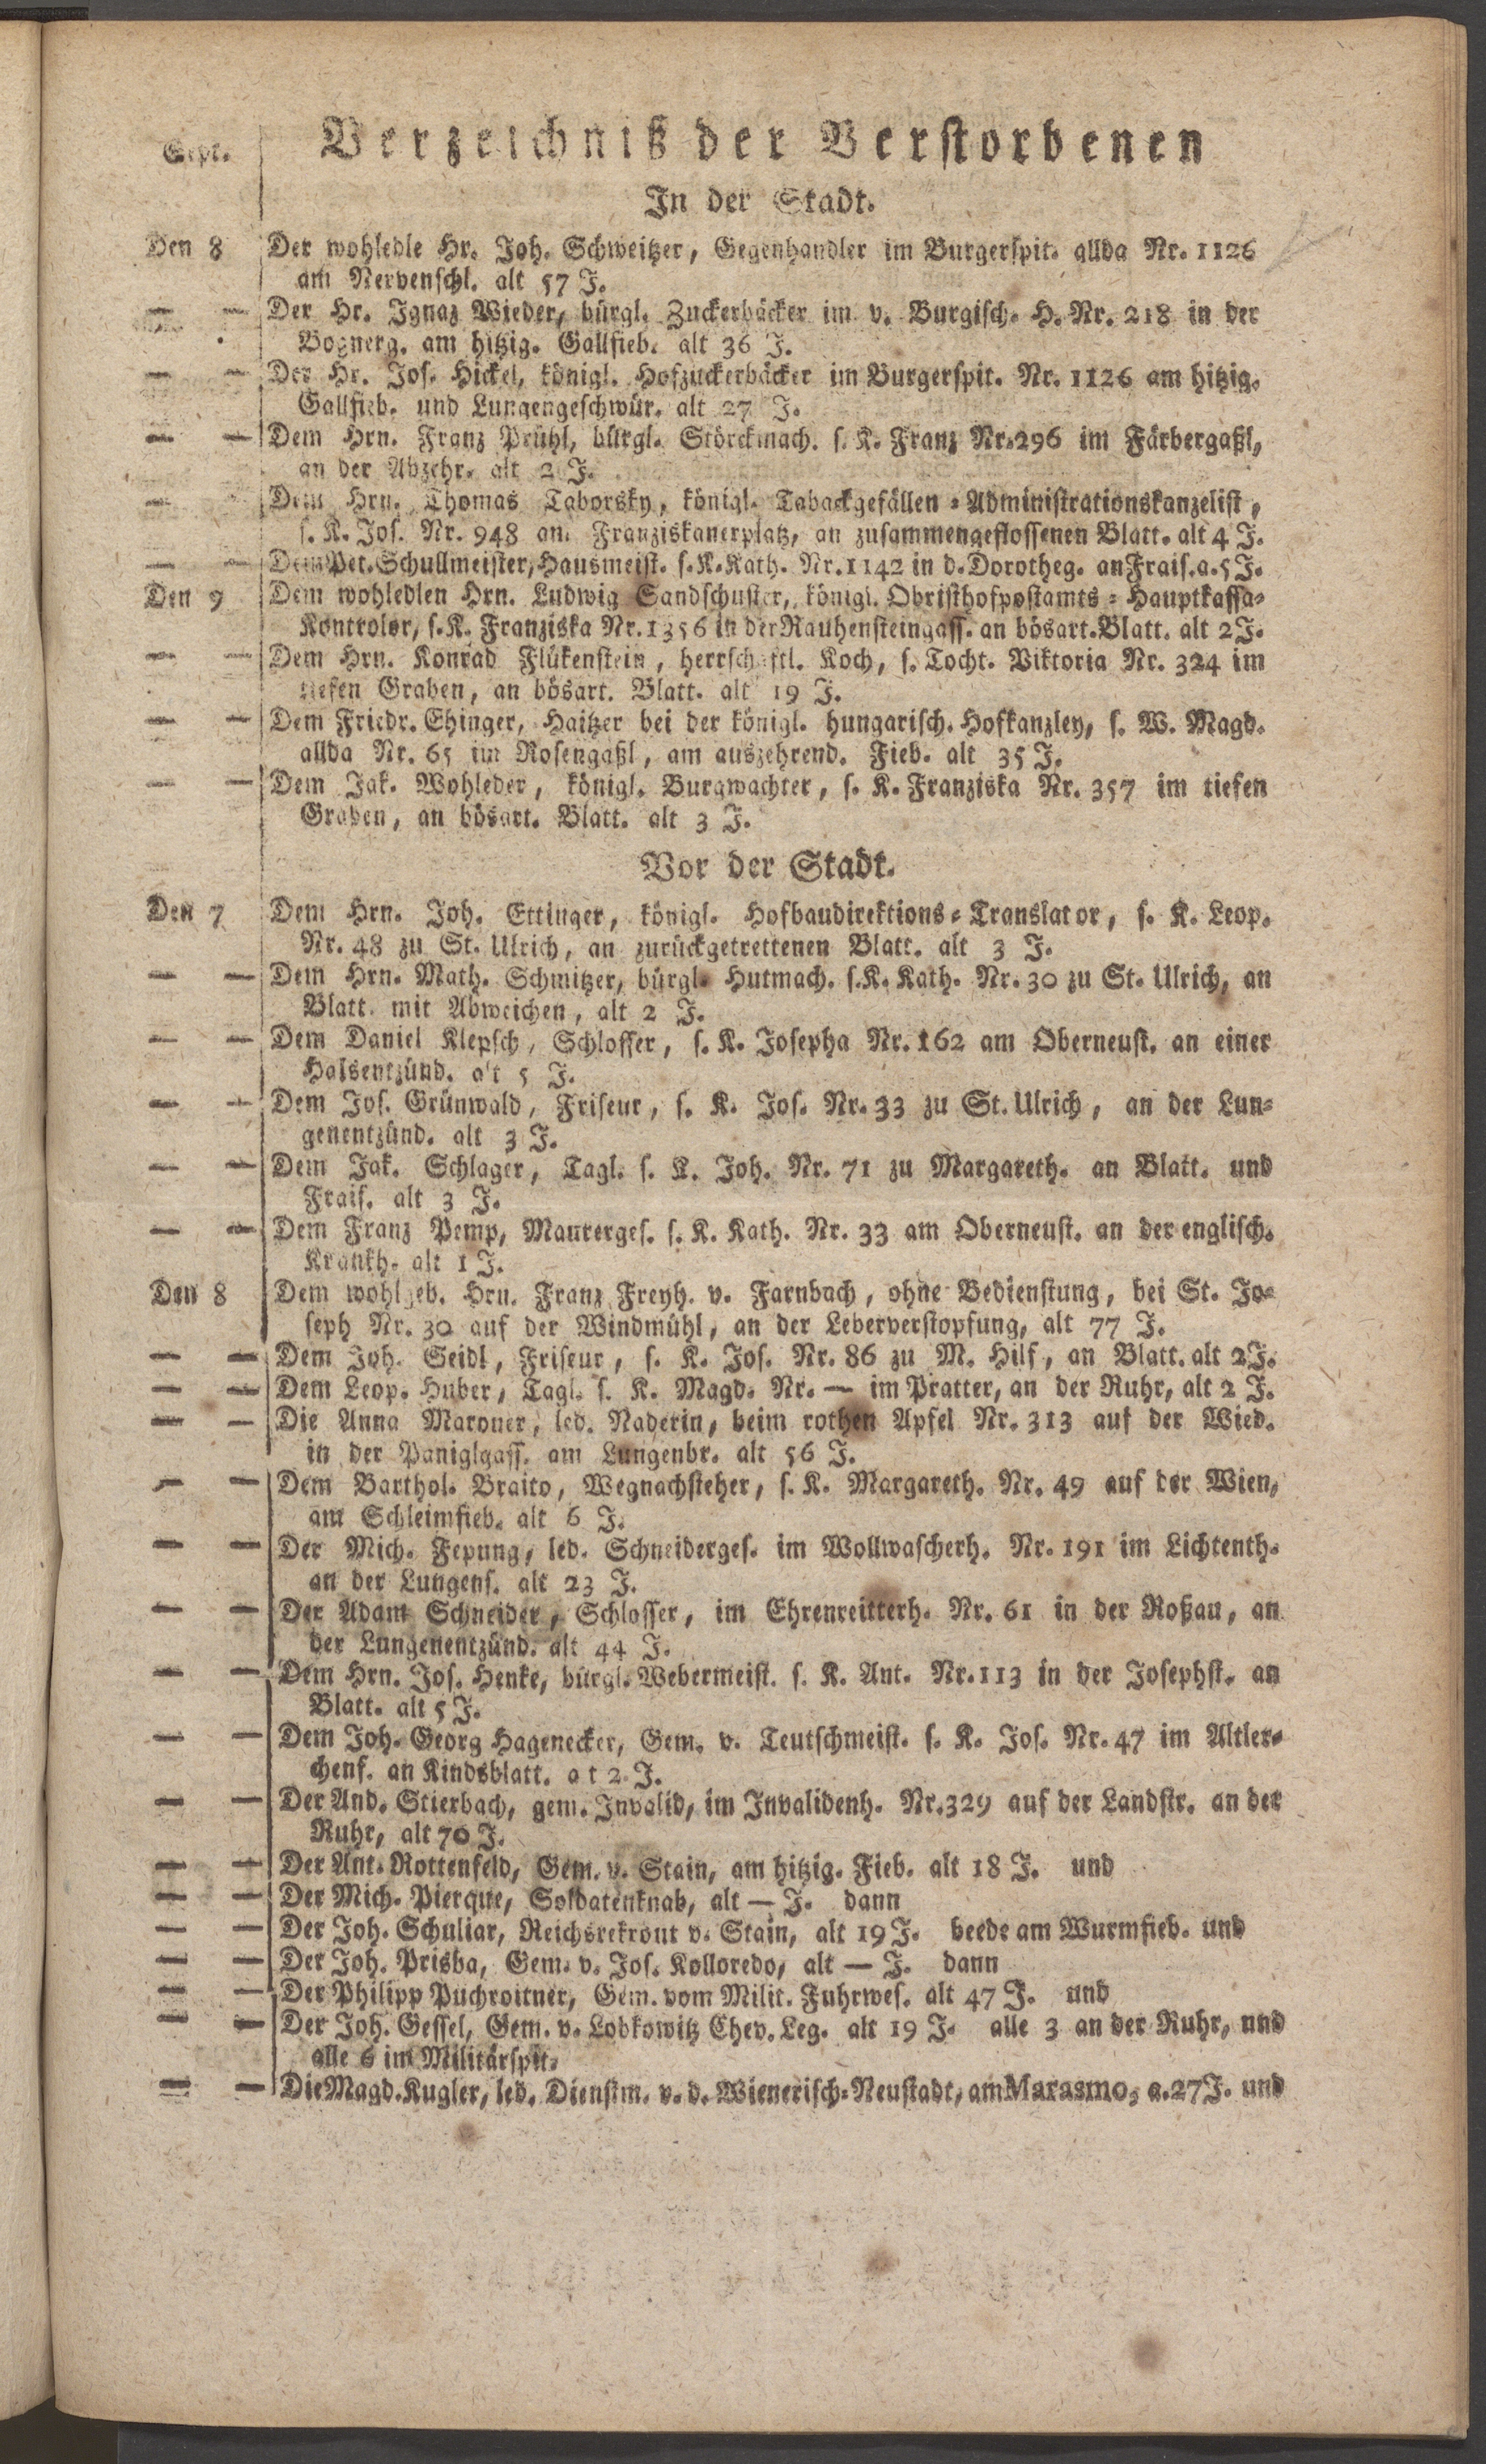 Sept.
Verzeichniß der Verstorbenen
In der Stadt.
Den 8 Der wohledle Hr. Joh. Schweitzer, Gegenhandler im Burgerspit. allda Nr. 1126
am Nervenschl. alt 57 J.
— — Der Hr. Ignaz Wieder, bürgl. Zuckerbäcker im v. Burgisch. H. Nr. 218 in der
Bognerg. am hitzig. Gallfieb. alt 36 J.
— — Der Hr. Jos. Hickel, königl. Hofzuckerbäcker im Burgerspit. Nr. 1126 am hitzig.
Gallfieb. und Lungengeschwür. alt 27 J.
— — Dem Hrn. Franz Prühl, bürgl. Störckmach. s. K. Franz Nr. 296 im Färbergaßl,
an der Abzehr. alt 2 J.
— Dem Hrn. Thomas Taborsky, königl. Tabackgefällen-Administrationskanzelist,
s. K. Jos. Nr. 948 am Franziskanerplatz, an zusammengeflossenen Blatt. alt 4 J.
— — Dem Pet. Schullmeister, Hausmeist. s. K. Kath. Nr. 1142 in d. Dorotheg. an Frais. a. 5 J.
Den 9 Dem wohledlen Hrn. Ludwig Sandschuster, königl. Obristhofpostamts-Hauptkassa-
Kontrolor, s. K. Franziska Nr. 1356 in der Rauhensteingass. an bösart. Blatt. alt 2 J.
— — Dem Hrn. Konrad Flükenstein, herrschaftl. Koch, s. Tocht. Viktoria Nr. 324 im
tiefen Graben, an bösart. Blatt. alt 19 J.
— — Dem Friedr. Ehinger, Haitzer bei der königl. hungarisch. Hofkanzley, s. W. Magd.
allda Nr. 65 im Rosengaßl, am auszehrend. Fieb. alt 35 J.
— — Dem Jak. Wohleder, königl. Burgwachter, s. K. Franziska Nr. 357 im tiefen
Graben, an bösart. Blatt. alt 3 J.
Vor der Stadt.
Den 7 Dem Hrn. Joh. Ettinger, königl. Hofbaudirektions-Translator, s. K. Leop.
Nr. 48 zu St. Ulrich, an zurückgetrettenen Blatt. alt 3 J.
— — Dem Hrn. Math. Schmitzer, bürgl. Hutmach. s. K. Kath. Nr. 30 zu St. Ulrich, an
Blatt. mit Abweichen, alt 2 J.
— — Dem Daniel Klepsch, Schlosser, s. K. Josepha Nr. 162 am Oberneust. an einer
Halsentzünd. a't 5 J.
— — Dem Jos. Grünwald, Friseur, s. K. Jos. Nr. 33 zu St. Ulrich, an der Lun-
genentzünd. alt 3 J.
— — Dem Jak. Schlager, Tagl. s. K. Joh. Nr. 71 zu Margareth. an Blatt. und
Frais. alt 3 J.
— — Dem Franz Pemp, Maurerges. s. K. Kath. Nr. 33 am Oberneust. an der englisch.
Krankh. alt 1 J.
Den 8 Dem wohlgeb. Hrn. Franz Freyh. v. Farnbach, ohne Bedienstung, bei St. Jo-
seph Nr. 30 auf der Windmühl, an der Leberverstopfung, alt 77 J.
— — Dem Joh. Seidl, Friseur, s. K. Jos. Nr. 86 zu M. Hilf, an Blatt. alt 2 J.
— — Dem Leop. Huber, Tagl. s. K. Magd. Nr. — im Pratter, an der Ruhr, alt 2 J.
— — Die Anna Maroner, led. Naderin, beim rothen Apfel Nr. 313 auf der Wied.
in der Paniglgass. am Lungenbr. alt 56 J.
— — Dem Barthol. Braito, Wegnachsteher, s. K. Margareth. Nr. 49 auf der Wien,
am Schleimfieb. alt 6 J.
— — Der Mich. Fepung, led. Schneiderges. im Wollwascherh. Nr. 191 im Lichtenth.
an der Lungens. alt 23 J.
— — Der Adam Schneider, Schlosser, im Ehrenreitterh. Nr. 61 in der Roßau, an
der Lungenentzünd. alt 44 J.
— — Dem Hrn. Jos. Henke, bürgl. Webermeist. s. K. Ant. Nr. 113 in der Josephst. an
Blatt. alt 5 J.
— — Dem Joh. Georg Hagenecker, Gem. v. Teutschmeist. s. K. Jos. Nr. 47 im Altler-
chenf. an Kindsblatt. a t 2 J.
— — Der And. Stierbach, gem. Invalid, im Invalidenh. Nr. 329 auf der Landstr. an der
Ruhr, alt 70 J.
— — Der Ant. Rottenfeld, Gem. v. Stain, am hitzig. Fieb. alt 18 J. und
— — Der Mich. Pierque, Soldatenknab, alt — J. dann
— — Der Joh. Schuliar, Reichsrekrout v. Stain, alt 19 J. beede am Wurmfieb. und
— — Der Joh. Prisba, Gem. v. Jos. Kolloredo, alt — J. dann
— — Der Philipp Puchroitner, Gem. vom Milit. Fuhrwes. alt 47 J. und
— — Der Joh. Gessel, Gem. v. Lobkowitz Chev. Leg. alt 19 J. alle 3 an der Ruhr, und
alle 6 im Militärspit.
— — Die Magd. Kugler, led. Dienstm. v. d. Wienerisch-Neustadt, am Marasmo, a. 27 J. und